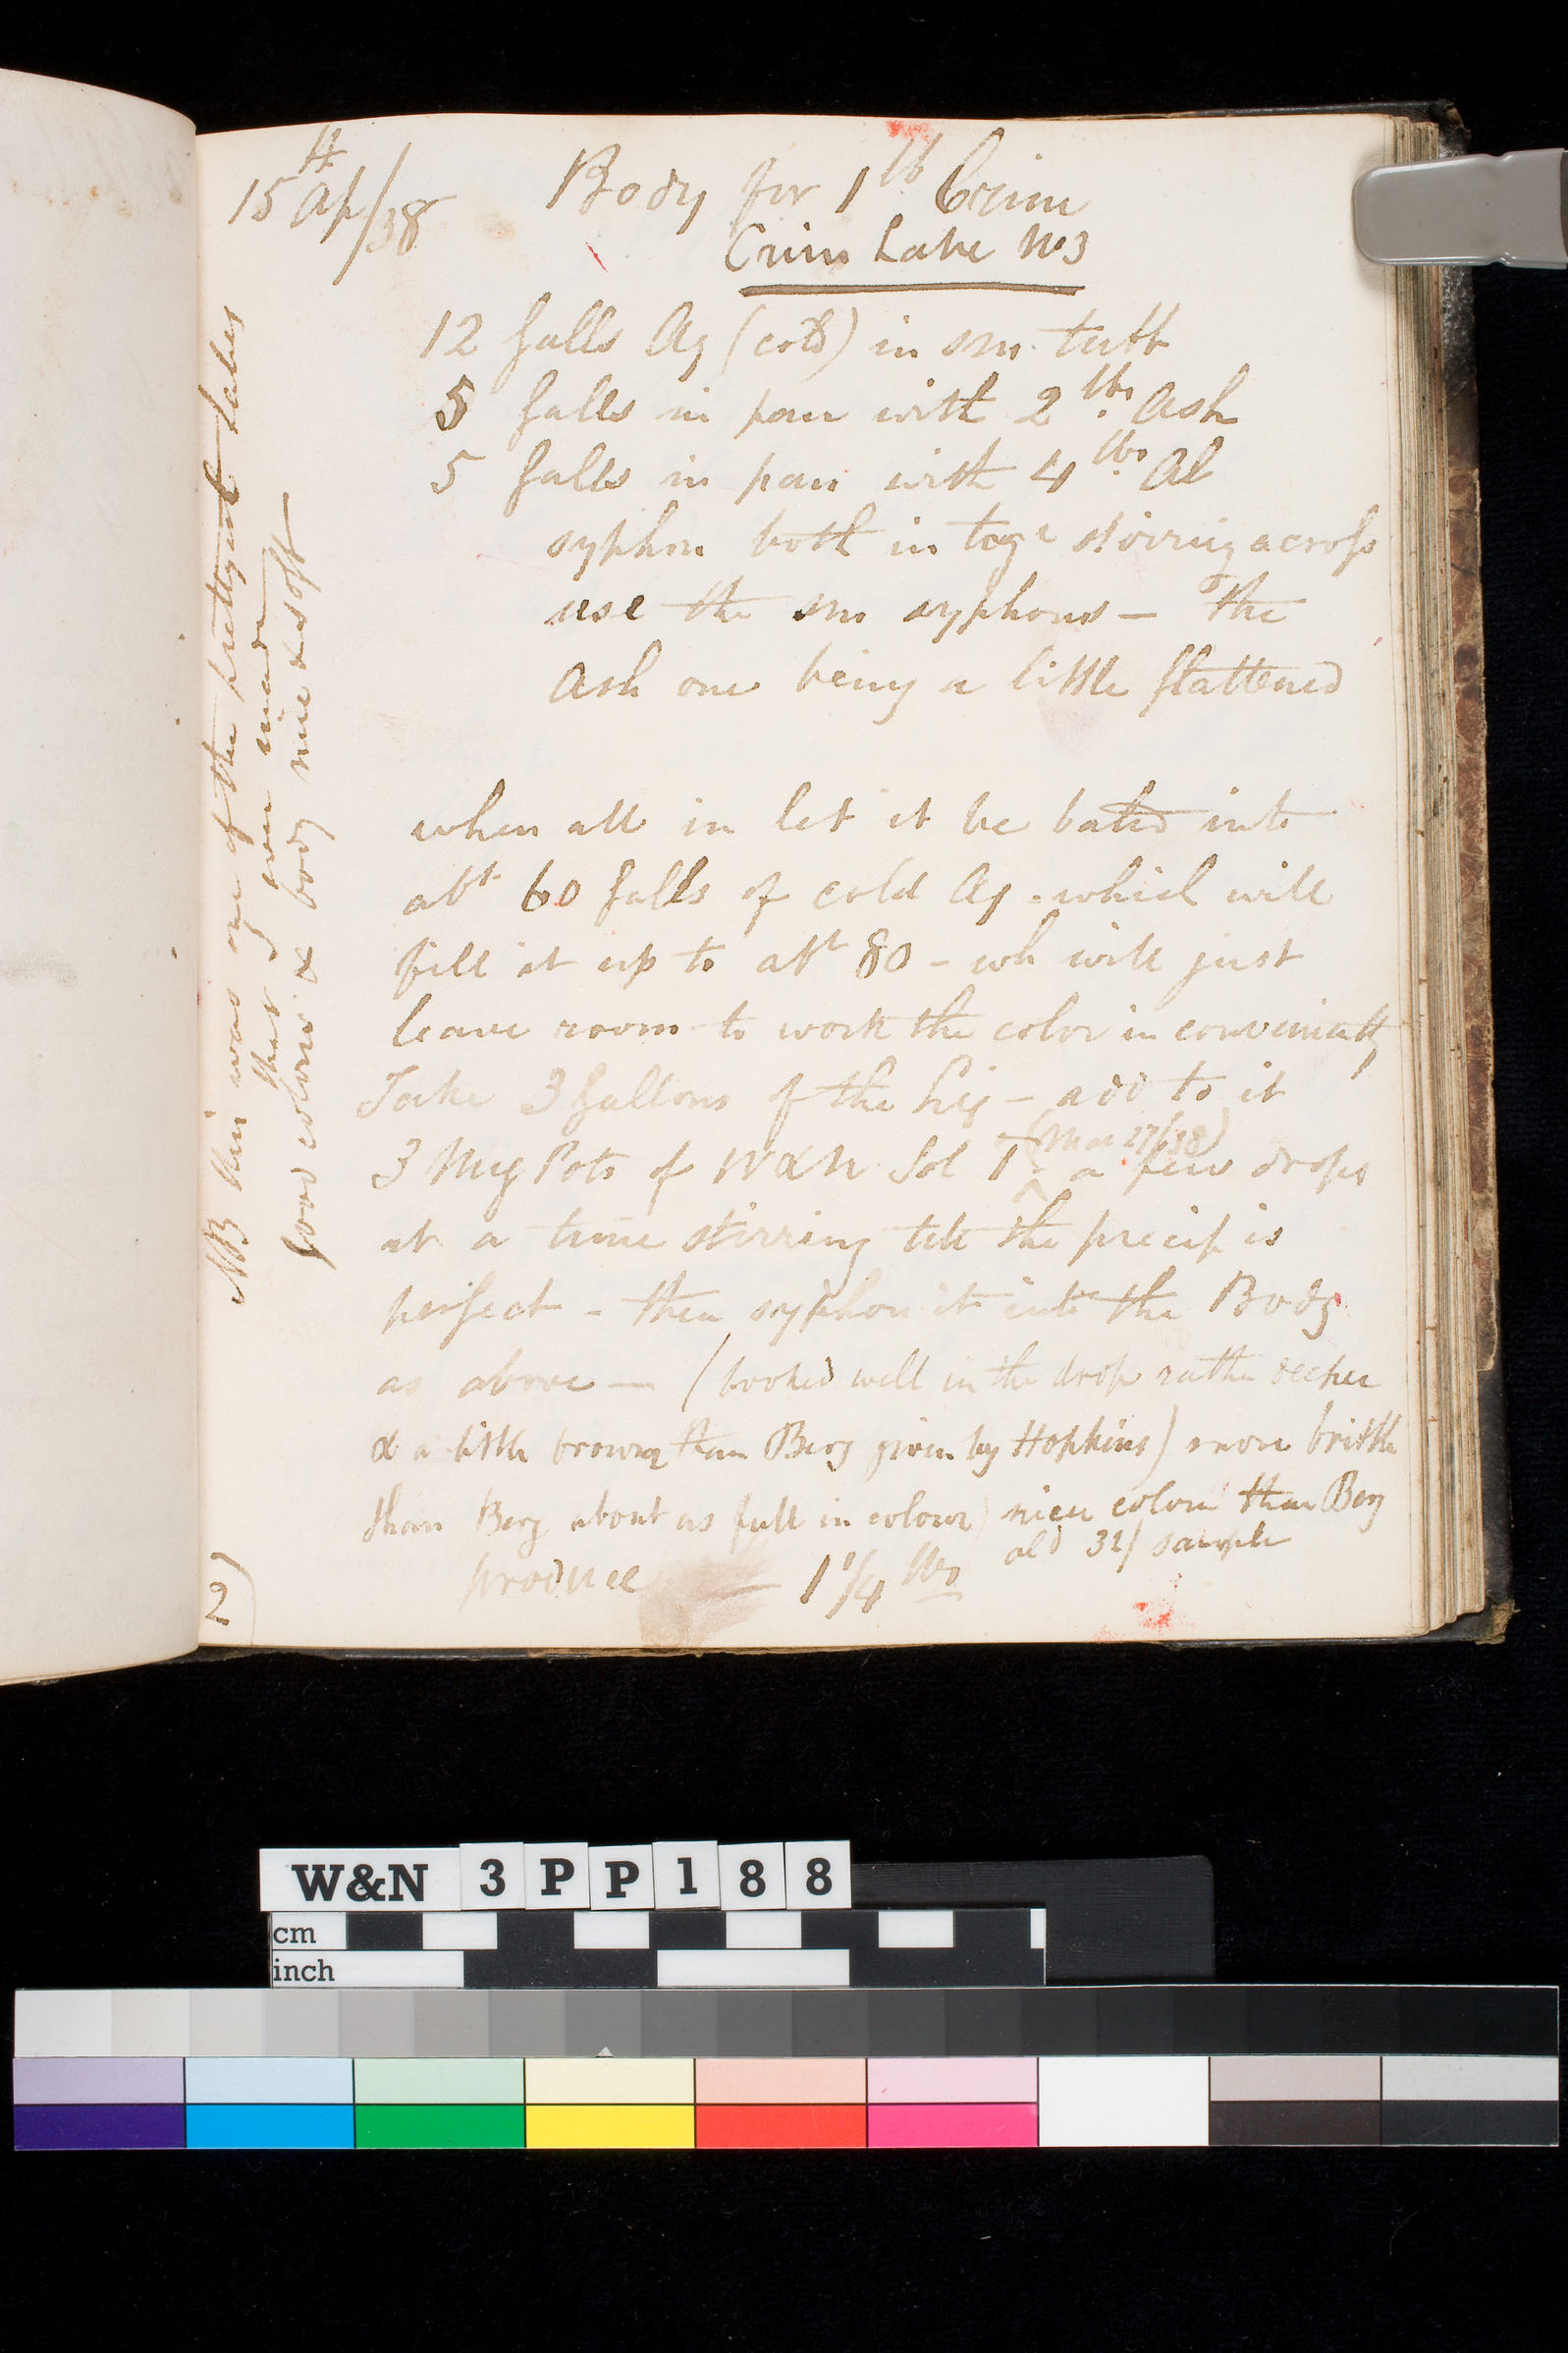 15 Ap/38
Body for 1 lb Crim
Crim Lake No3
12 Galls Aq (cold) in sm. tubb
5 Galls in pan with 2 lbs Ash
5 Galls in pan with 4 lbs Al
syphon both in togr stirring across
use the sm syphons – the
Ash one being a little flattened
when all in let it be bated into
abt 60 Galls of cold Aq. which will
fill it up to abt 80 – wh will just
leave room to work the color in conveniently
Take 3 Gallons of the Liq – add to it
(Mar 27/38)
3 Mug Pots of W&N Sol T a few drops
at a time stirring till the precip is
perfect – then syphon it into the Body
as above — (looked well in the drop rather deeper
& a little browner than Berg given by Hopkins) more brittle
than Berg about as full in colour nicer colour than Berg
old 32/ sample
produce — 1 1/4 lbs
NB this was one of the prettyest Lakes
that I ever made
good colour & body nice & soft —
2)
W&N 3PP188
cm
inch